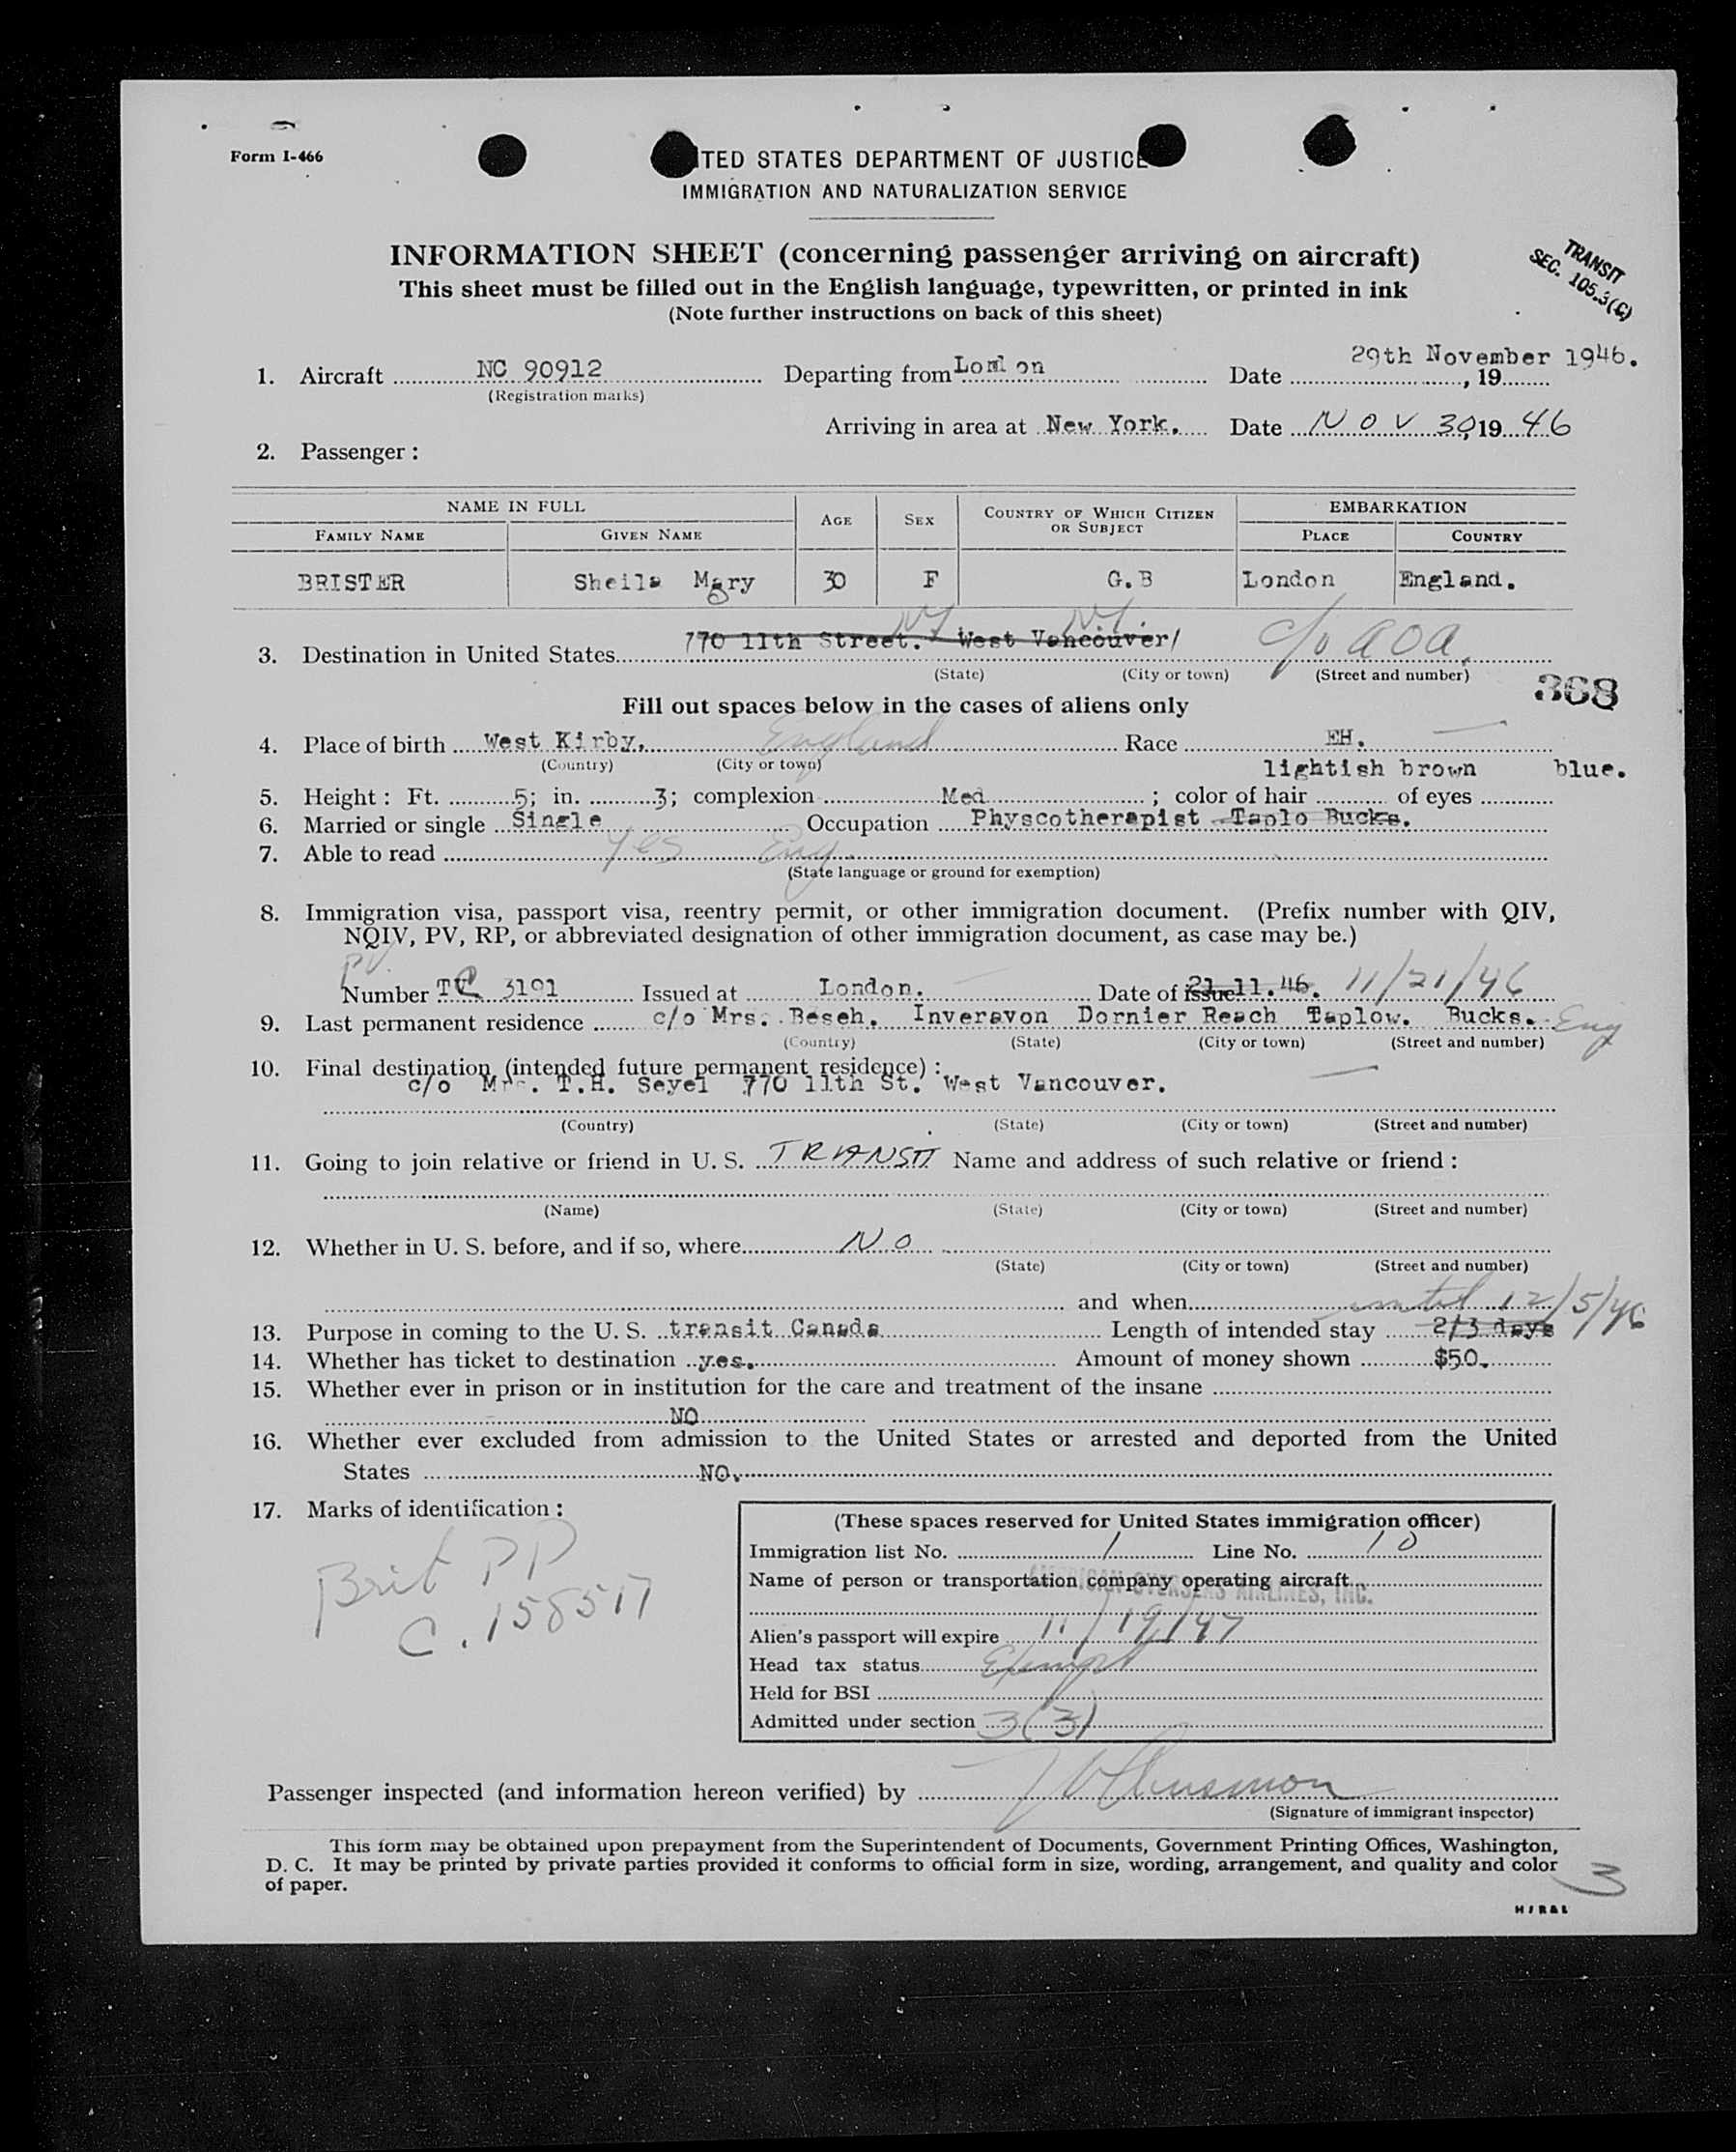 Form I-466
TED STATES DEPARTMENT OF JUSTICE
IMMIGRATION AND NATURALIZATION SERVICE
INFORMATION SHEET (concerning passenger arriving on aircraft)
TRANSIT
SEC. 105.3(C)
This sheet must be filled out in the English language, typewritten, or printed in ink
(Note further instructions on back of this sheet)
29th November 1946.
1. Aircraft NC 90912 Departing from London Date , 19
(Registration marks)
Arriving in area at New York. Date NOV 30, 19 46
2. Passenger :
NAME IN FULL AGE SEX COUNTRY OF WHICH CITIZEN OR SUBJECT EMBARKATION
FAMILY NAME GIVEN NAME PLACE COUNTRY
BRISTER Sheila Mary 30 F G.B London England.
NY NY.
3. Destination in United States 770 11th Street. West Vancouver/ c/o AOA.
(State) (City or town) (Street and number)
368
Fill out spaces below in the cases of aliens only
4. Place of birth West Kirby. England Race EH.
(Country) (City or town)
lightish brown blue.
5. Height : Ft. 5; in. 3; complexion Med ; color of hair of eyes
6. Married or single Single Occupation Physcotherapist Taplo Bucks.
7. Able to read Yes Eng.
(State language or ground for exemption)
8. Immigration visa, passport visa, reentry permit, or other immigration document. (Prefix number with QIV,
NQIV, PV, RP, or abbreviated designation of other immigration document, as case may be.)
PV
Number TC 3191 Issued at London. Date of issue 21.11.46. 11/21/46
9. Last permanent residence c/o Mrs. Beseh. Inveravon Dornier Reach Taplow. Bucks. Eng
(Country) (State) (City or town) (Street and number)
10. Final destination (intended future permanent residence) :
c/o Mrs. T.H. Seyel 770 11th St. West Vancouver.
(Country) (State) (City or town) (Street and number)
11. Going to join relative or friend in U. S. TRANSIT Name and address of such relative or friend :
(Name) (State) (City or town) (Street and number)
12. Whether in U. S. before, and if so, where NO
(State) (City or town) (Street and number)
and when until 12/5/46
13. Purpose in coming to the U. S. transit Canada Length of intended stay 2/3 days
14. Whether has ticket to destination yes. Amount of money shown $50.
15. Whether ever in prison or in institution for the care and treatment of the insane
NO
16. Whether ever excluded from admission to the United States or arrested and deported from the United
States NO.
17. Marks of identification :
Brit PP
C. 158517
(These spaces reserved for United States immigration officer)
Immigration list No. 1 Line No. 10
Name of person or transportation company operating aircraft
AMERICAN OVERSEAS AIRLINES, INC.
Alien's passport will expire 11/19/47
Head tax status Exempt
Held for BSI
Admitted under section 3(3)
Passenger inspected (and information hereon verified) by
(Signature of immigrant inspector)
This form may be obtained upon prepayment from the Superintendent of Documents, Government Printing Offices, Washington,
D. C. It may be printed by private parties provided it conforms to official form in size, wording, arrangement, and quality and color
of paper.
3